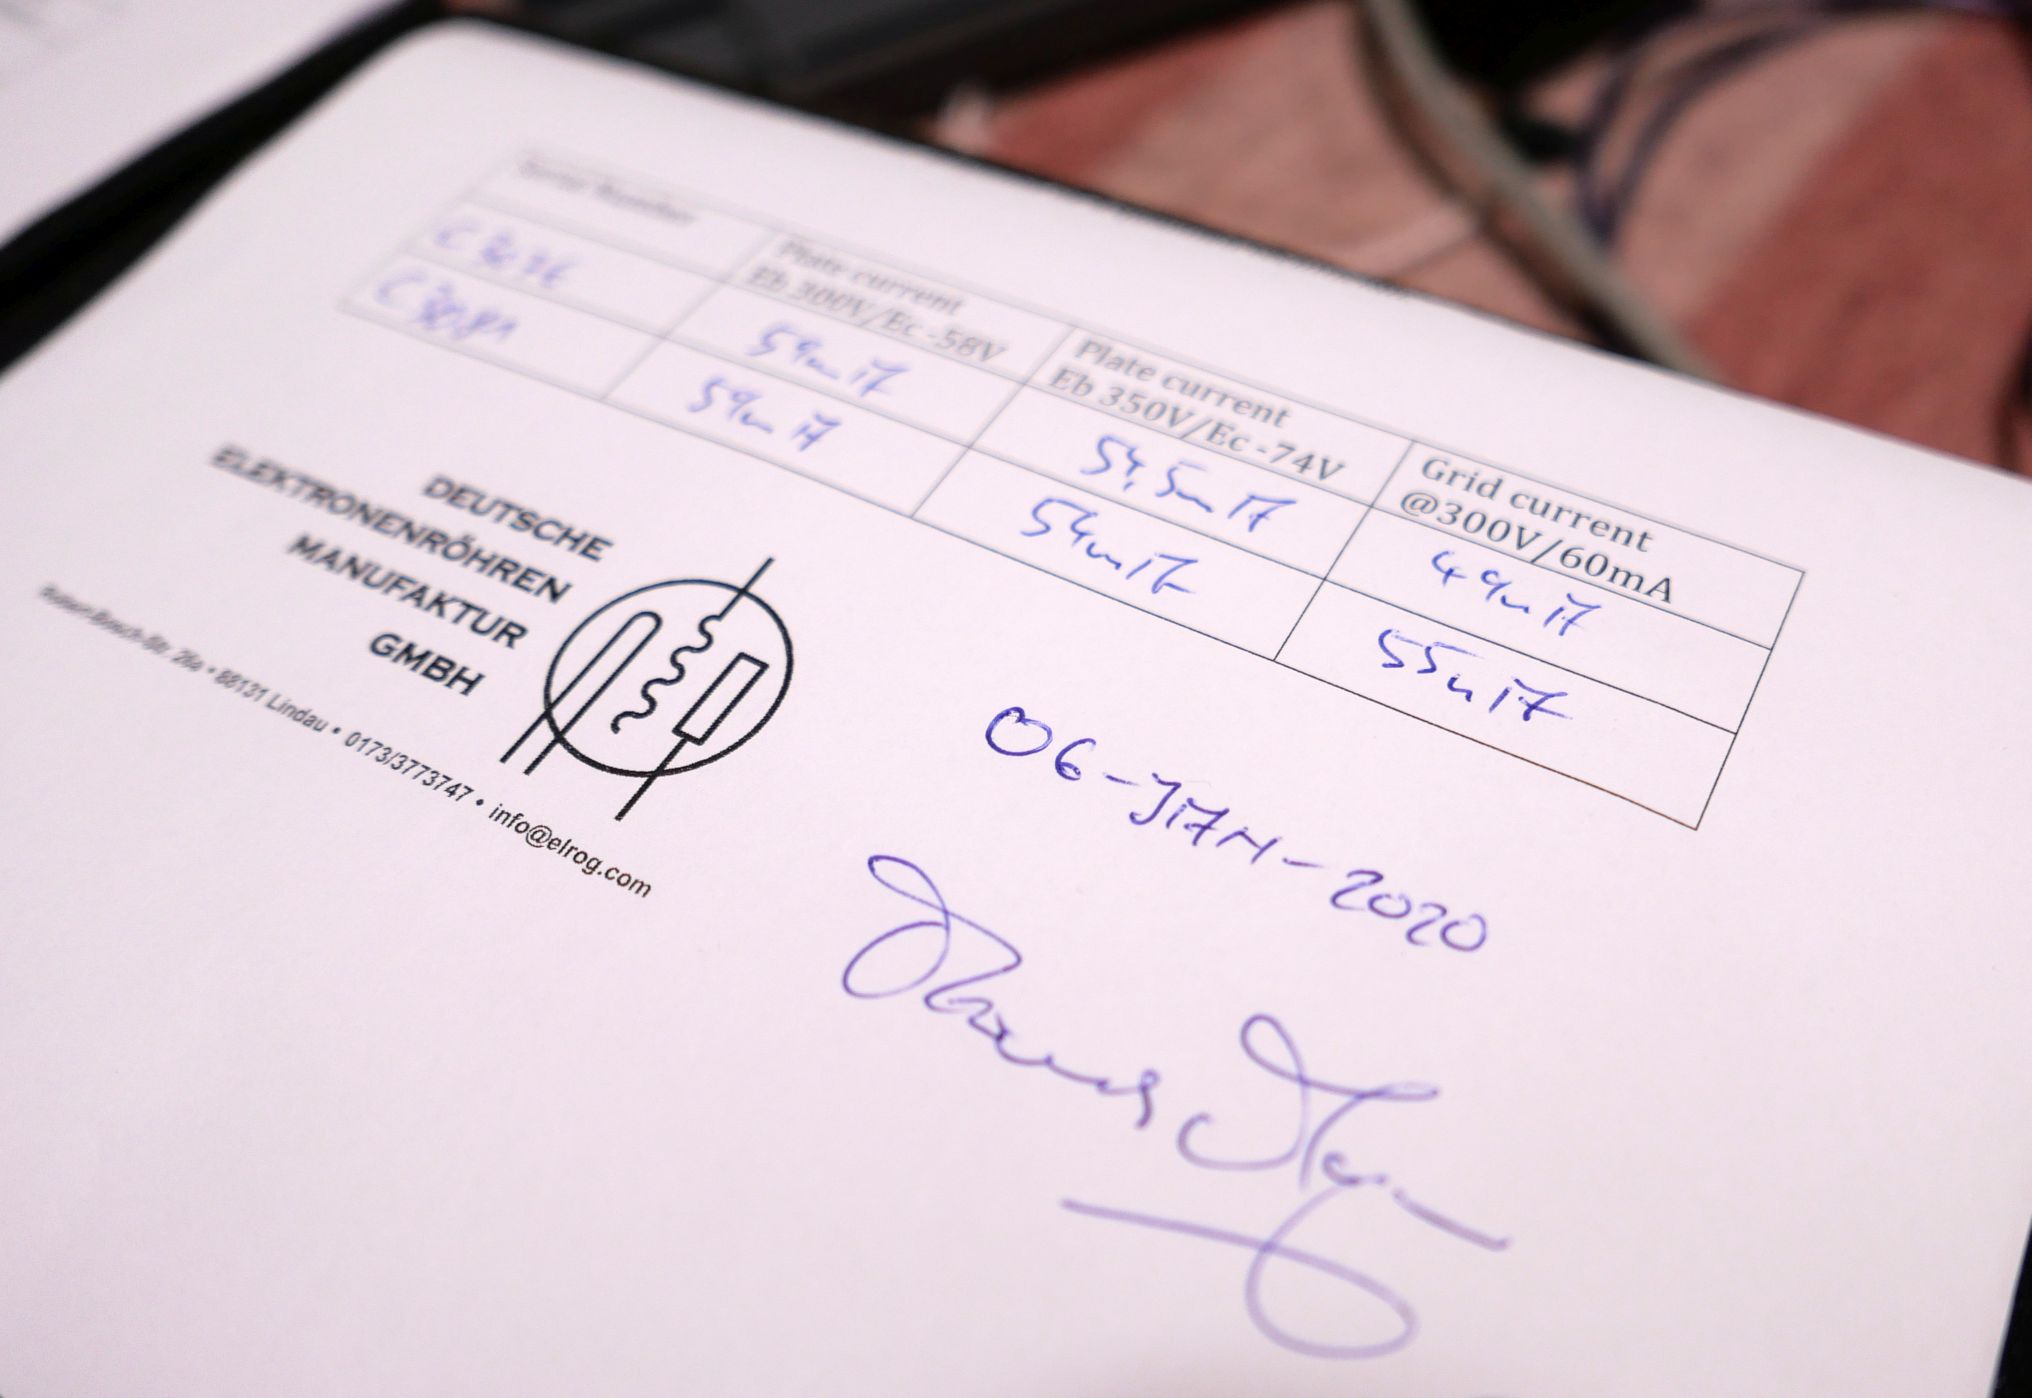 Serial Number
Plate current
Eb 300V/Ec -58V
Plate current
Eb 350V/Ec -74V
Grid current
@300V/60mA
59mA
54,5mA
49nA
59mA
54mA
55nA
DEUTSCHE
ELEKTRONENRÖHREN
MANUFAKTUR
GMBH
Robert-Bosch-Str. 26a • 88131 Lindau • 0173/3773747 • info@elrog.com
06-JAN-2020